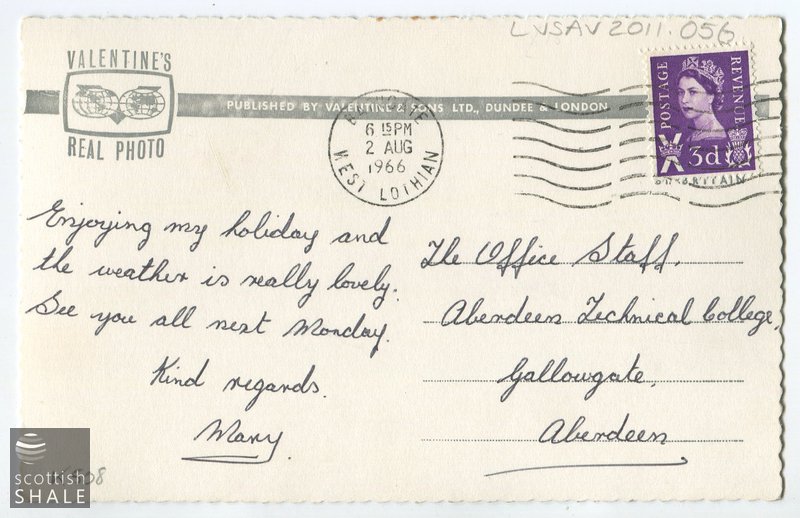 LVSAV2011.056
VALENTINE'S
REAL PHOTO
PUBLISHED BY VALENTINE & SONS LTD., DUNDEE & LONDON
6 15 PM
2 AUG
1966
WEST LOTHIAN
POSTAGE
REVENUE
3d
Enjoying my holiday and
the weather is really lovely.
See you all next Monday.
Kind regards.
Mary.
The Office Staff,
Aberdeen Technical College,
Gallowgate,
Aberdeen
scottish
SHALE